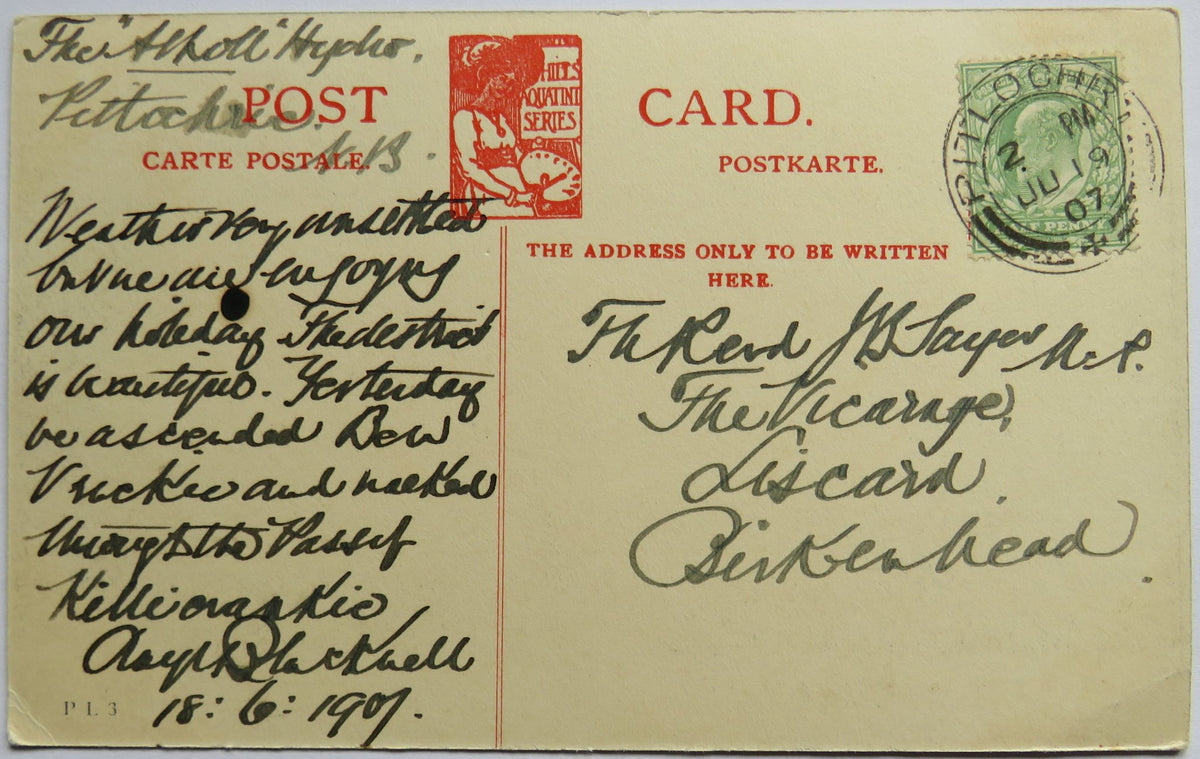 The "Atholl" Hydro.
Pitlochrie.
N.B.
POST CARD.
CARTE POSTALE.
POSTKARTE.
HILLS
AQUATINT
SERIES
THE ADDRESS ONLY TO BE WRITTEN
HERE.
PITLOCHRY
2. PM
JU 19
07
Weather very unsettled
but we are enjoying
our holiday The district
is beautiful. Yesterday
we ascended Ben
Vrackie and walked
through the Pass of
Killiecrankie,
Blackwell
18:6:1907.
The Revd J B Sayer
The Vicarage,
Liscard.
Birkenhead.
P L 3